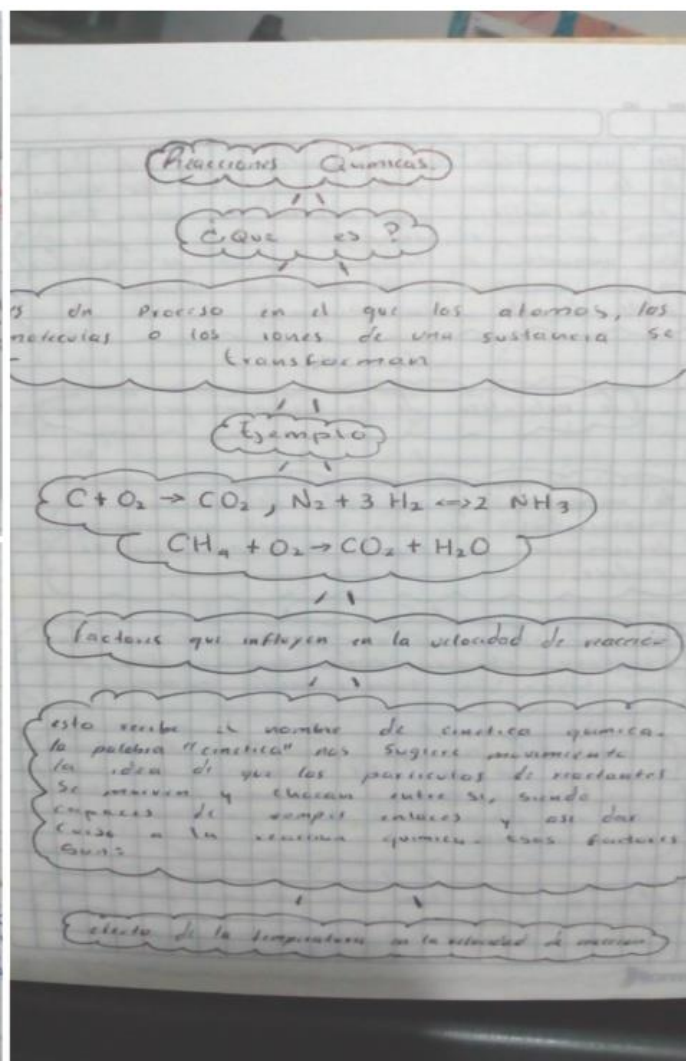 Reacciones Quimicas.
¿Que es?
es un Proceso en el que los atomos, las
moleculas o los iones de una sustancia se
transforman
Ejemplo
C + O₂ → CO₂, N₂ + 3 H₂ <-> 2 NH₃
CH₄ + O₂ → CO₂ + H₂O
factores que influyen en la velocidad de reacción
esto recibe el nombre de cinetica quimica.
la palabra "cinetica" nos sugiere movimiento
la idea de que las particulas de reactantes
se mueven y chocan entre si, siendo
capaces de romper enlaces y asi dar
curso a la reaccion quimica. esos factores
son:
efecto de la temperatura en la velocidad de reaccion